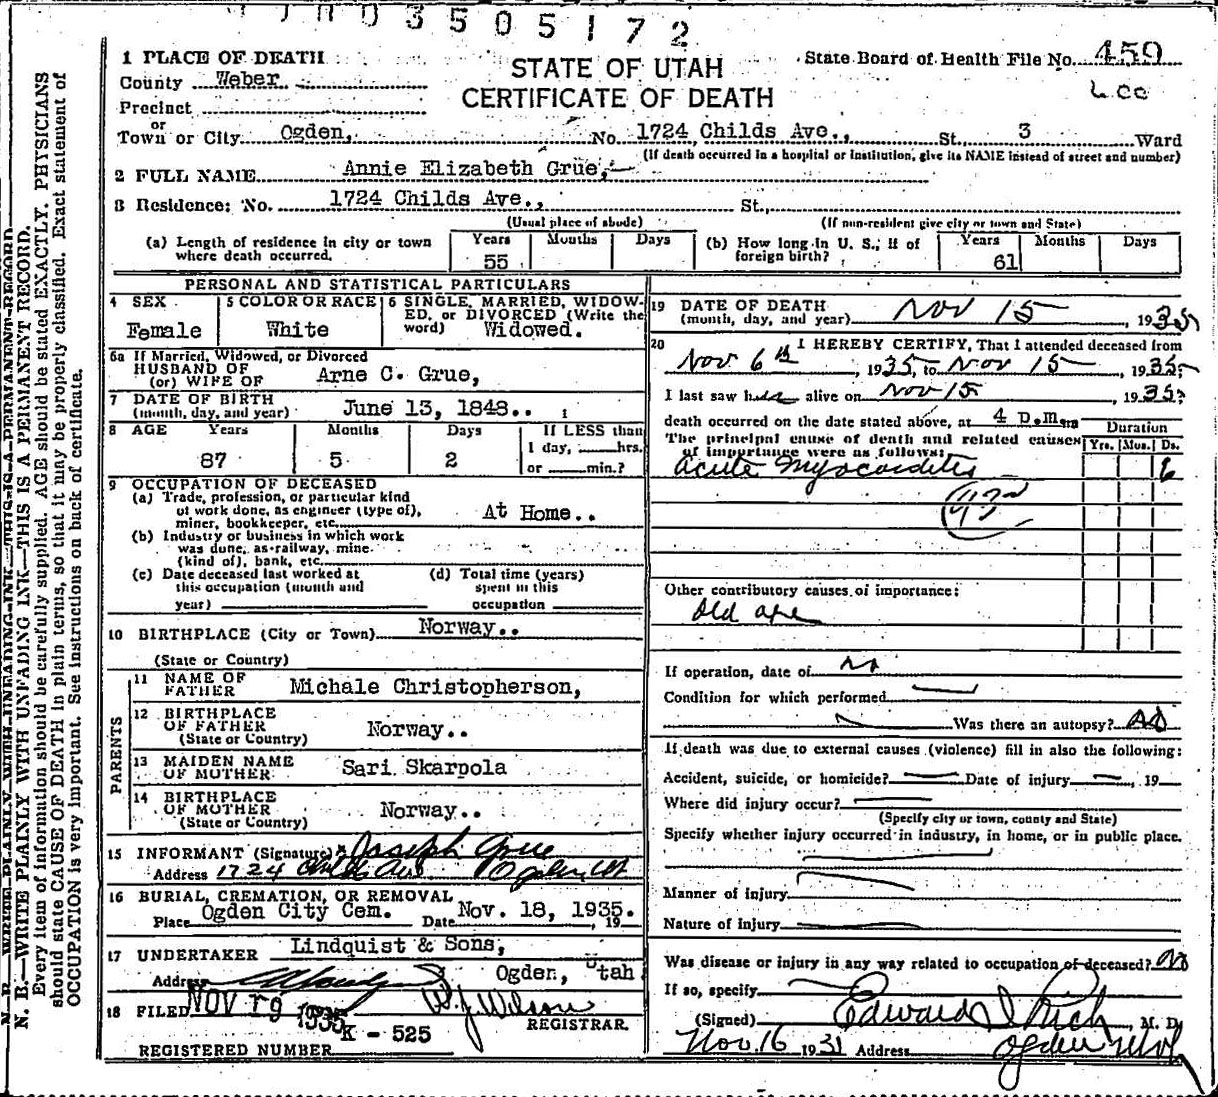 3505172
1 PLACE OF DEATH
STATE OF UTAH
CERTIFICATE OF DEATH
State Board of Health File No. 459
County Weber
Precinct
or
Town or City Ogden, No. 1724 Childs Ave., St. 3 Ward
(If death occurred in a hospital or institution, give its NAME instead of street and number)
2 FULL NAME Annie Elizabeth Grue,
3 Residence: No. 1724 Childs Ave., St.,
(Usual place of abode) (If non-resident give city or town and State)
(a) Length of residence in city or town where death occurred. Years 55 Months Days
(b) How long in U. S., if of foreign birth? Years 61 Months Days
PERSONAL AND STATISTICAL PARTICULARS
4 SEX Female
5 COLOR OR RACE White
6 SINGLE, MARRIED, WIDOWED, or DIVORCED (Write the word) Widowed.
6a If Married, Widowed, or Divorced
HUSBAND OF
(or) WIFE OF Arne C. Grue,
7 DATE OF BIRTH
(month, day, and year) June 13, 1848..
8 AGE Years 87 Months 5 Days 2
If LESS than
1 day, hrs.
or min.?
9 OCCUPATION OF DECEASED
(a) Trade, profession, or particular kind
of work done, as engineer (type of),
miner, bookkeeper, etc. At Home..
(b) Industry or business in which work
was done, as railway, mine
(kind of), bank, etc.
(c) Date deceased last worked at
this occupation (month and
year)
(d) Total time (years)
spent in this
occupation
10 BIRTHPLACE (City or Town) Norway..
(State or Country)
PARENTS
11 NAME OF
FATHER Michale Christopherson,
12 BIRTHPLACE
OF FATHER
(State or Country) Norway..
13 MAIDEN NAME
OF MOTHER Sari Skarpola
14 BIRTHPLACE
OF MOTHER
(State or Country) Norway..
15 INFORMANT (Signature) Joseph Grue
Address 1724 Childs Ave Ogden Ut
16 BURIAL, CREMATION, OR REMOVAL
Place Ogden City Cem. Date Nov. 18, 1935. 19
17 UNDERTAKER Lindquist & Sons,
Address Ogden, Utah
18 FILED NOV 19 1935 W. J. Wilson
REGISTRAR.
K - 525
REGISTERED NUMBER
19 DATE OF DEATH
(month, day, and year) Nov 15, 1935
20 I HEREBY CERTIFY, That I attended deceased from
Nov 6th, 1935, to Nov 15, 1935
I last saw her alive on Nov 15, 1935;
death occurred on the date stated above, at 4 P.M.
The principal cause of death and related causes
of importance were as follows:
Duration
Yrs. Mos. Ds.
Acute Myocarditis 6
Other contributory causes of importance:
Old age
If operation, date of no
Condition for which performed
Was there an autopsy? No
If death was due to external causes (violence) fill in also the following:
Accident, suicide, or homicide? Date of injury , 19
Where did injury occur?
(Specify city or town, county and State)
Specify whether injury occurred in industry, in home, or in public place.
Manner of injury
Nature of injury
Was disease or injury in any way related to occupation of deceased? No
If so, specify
(Signed) Edward I Rich, M. D.
Nov. 16 1931 Address Ogden Utah
N. B.—WRITE PLAINLY WITH UNFADING INK—THIS IS A PERMANENT RECORD.
Every item of information should be carefully supplied. AGE should be stated EXACTLY. PHYSICIANS
should state CAUSE OF DEATH in plain terms, so that it may be properly classified. Exact statement of
OCCUPATION is very important. See instructions on back of certificate.